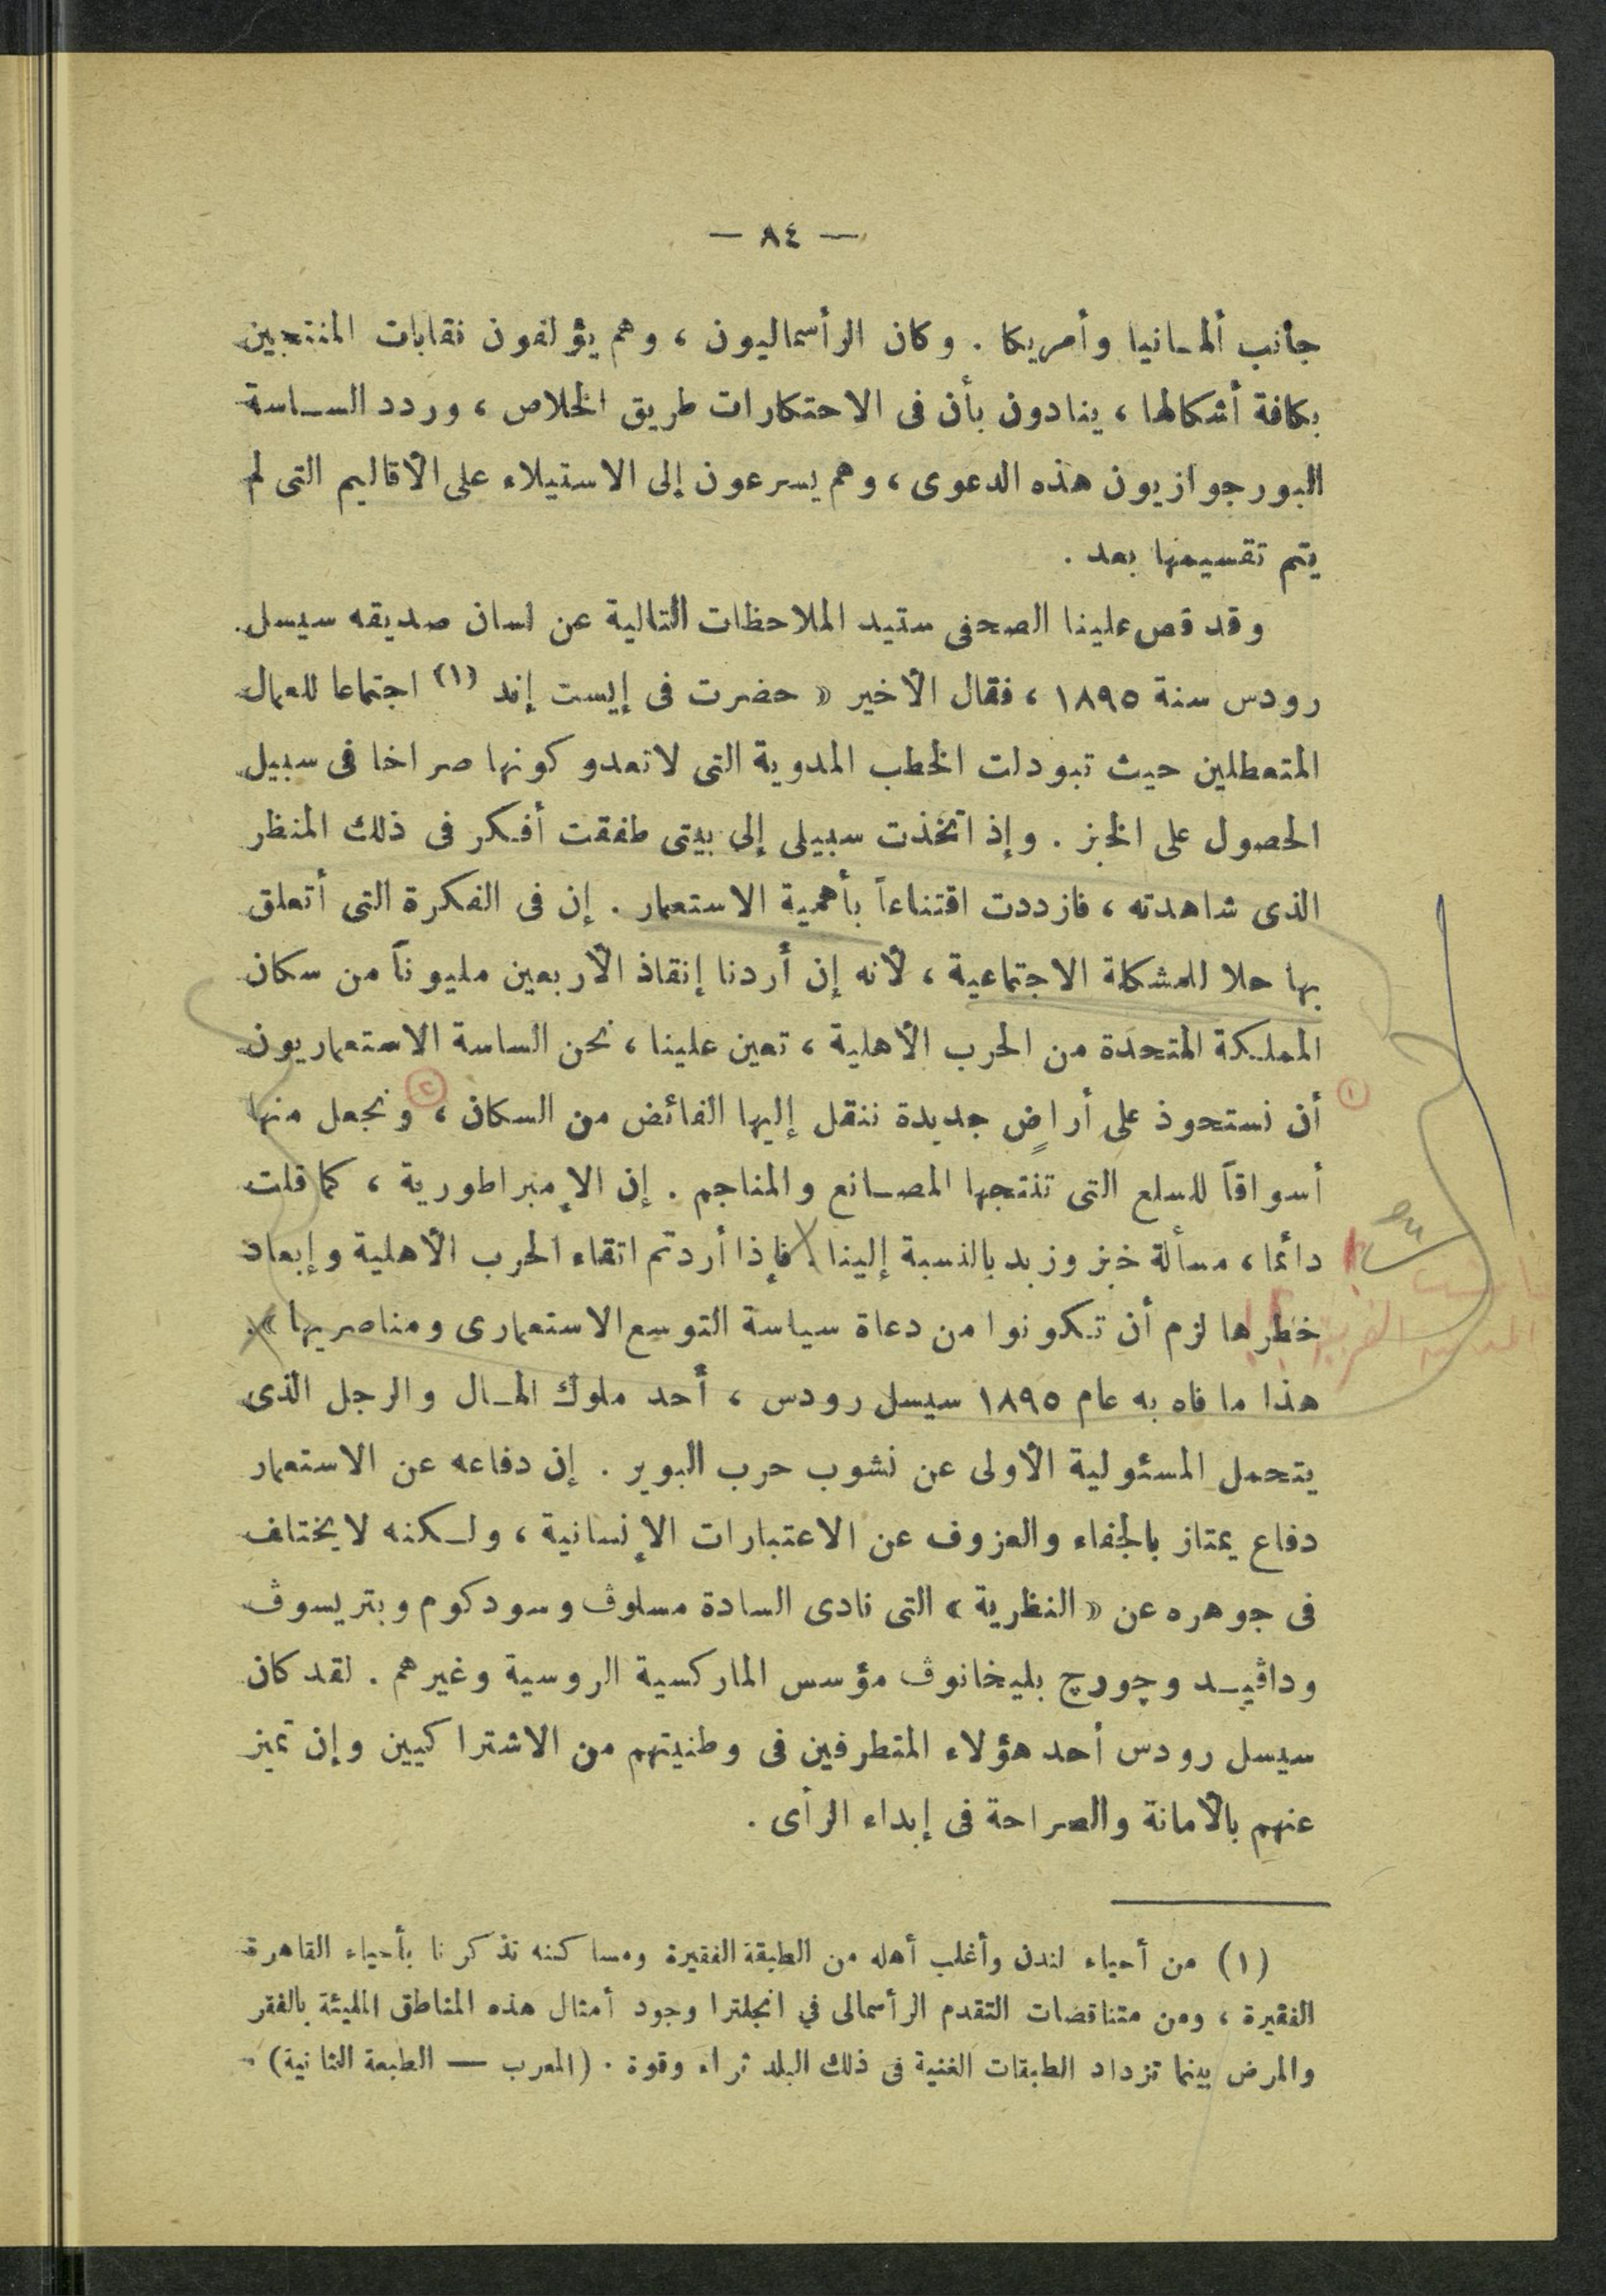 — ٨٤ —
جانب ألمـانيا وأمريكا . وكان الرأسماليون ، وهم يؤلفون نقابات المنتجين
بكافة أشكالها ، ينادون بأن فى الاحتكارات طريق الخلاص ، وردد الســاسة
البورجوازيون هذه الدعوى ، وهم يسرعون إلى الاستيلاء على الأقاليم التى لم
يتم تقسيمها بعد .
وقد قص علينا الصحفى ستيد الملاحظات التالية عن لسان صديقه سيسل
رودس سنة ١٨٩٥ ، فقال الأخير « حضرت فى إيست إند (١) اجتماعا للعمال
المتعطلين حيث تبودلت الخطب المدوية التى لاتعدو كونها صراخا فى سبيل
الحصول على الخبز . وإذ اتخذت سبيلى إلى بيتى طفقت أفـكر فى ذلك المنظر
الذى شاهدته ، فازددت اقتناعاً بأهمية الاستعمار . إن فى الفكرة التى أتعلق
بها حلا للمشكلة الاجتماعية ، لأنه إن أردنا إنقاذ الأربعين مليوناً من سكان
المملـكة المتحدة من الحرب الأهلية ، تعين علينا ، نحن الساسة الاستعماريون
① أن نستحوذ على أراضٍ جديدة ننقل إليها الفائض من السكان ، ② ونجعل منها
أسواقاً للسلع التى تنتجها المصـانع والمناجم . إن الإمبراطورية ، كما قلت
دائما ، مسألة خبز وزبد بالنسبة إلينا . فإذا أردتم اتقاء الحرب الأهلية وإبعاد
خطرها لزم أن تـكونوا من دعاة سياسة التوسع الاستعمارى ومناصريها » .
هذا ما فاه به عام ١٨٩٥ سيسل رودس ، أحد ملوك المـال والرجل الذى
يتحمل المسئولية الأولى عن نشوب حرب البوير . إن دفاعه عن الاستعمار
دفاع يمتاز بالجفاء والعزوف عن الاعتبارات الإنسانية ، ولـكنه لايختلف
فى جوهره عن « النظرية » التى نادى السادة مسلوڤ وسودكوم وبتريسوڤ
وداڤيـد وچورچ بليخانوڤ مؤسس الماركسية الروسية وغيرهم . لقد كان
سيسل رودس أحد هؤلاء المتطرفين فى وطنيتهم من الاشتراكيين وإن تميز
عنهم بالأمانة والصراحة فى إبداء الرأى .
(١) من أحياء لندن وأغلب أهله من الطبقة الفقيرة ومساكنه تذكرنا بأحياء القاهرة
الفقيرة ، ومن متناقضات التقدم الرأسمالى في انجلترا وجود أمثال هذه المناطق المليئة بالفقر
والمرض بينما تزداد الطبقات الغنية فى ذلك البلد ثراء وقوة . (المعرب — الطبعة الثانية) .